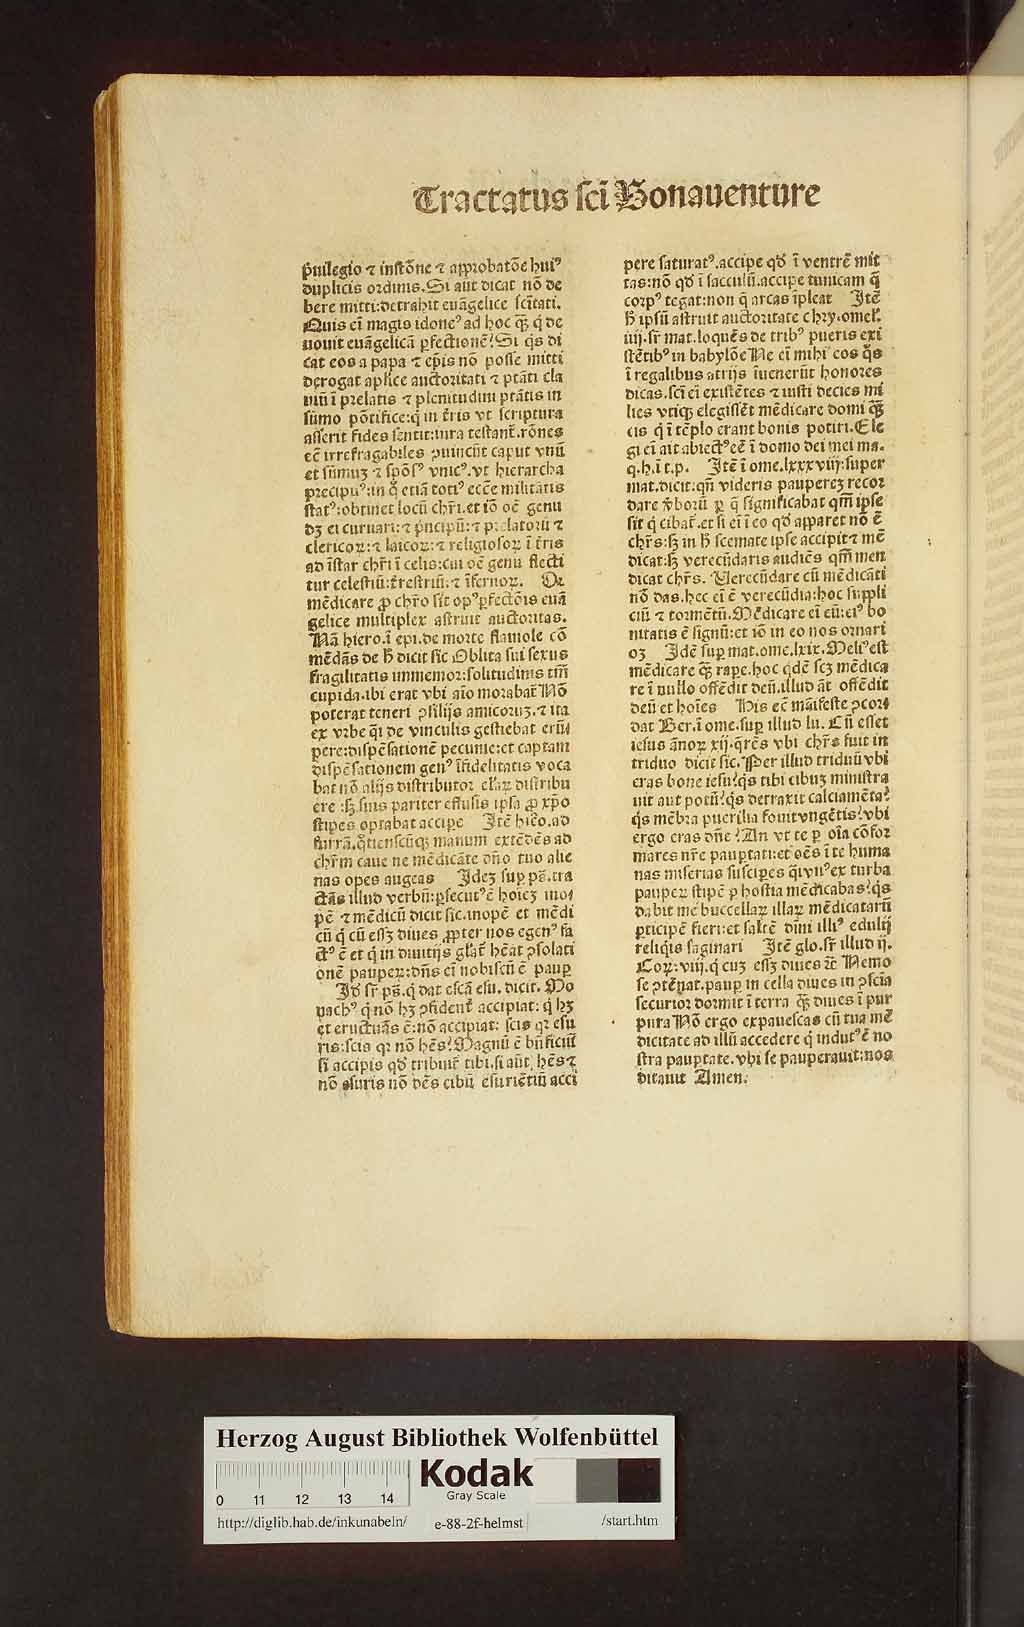 Tractatus sc̄i Bonauenture
p̄uilegio ⁊ inst̄one ⁊ approbatōe huiꝰ
duplicis ordinis. Si aūt dicat nō de
bere mitti: detrahit euāgelice sc̄itati.
Quis ei̅ magis idoneꝰ ad hoc qꝫ q̇ de
uouit euāgelicā ꝑfectionē? Si q̇s di
cat eos a papa ⁊ ep̄is nō posse mitti
derogat aplice auctoritati ⁊ ptāti cla
uiū ī prelatis ⁊ plenitudini ptātis in
sūmo pōtifice: q̇ in t̄ris vt scriptura
asserit fides sentit: iura testant̄. rōnes
ec̄ irrefragabiles ꝓuincūt caput vnū
et sūmuꝫ ⁊ spōsꝰ vnicꝰ. vt hierarcha
precipuꝰ: in q̊ etiā totiꝰ ecc̄e militātis
statꝰ: obtinet locū chr̄i. et iō oē genu
dꝫ ei curuari: ⁊ p̄ncipū: ⁊ p̄latorū ⁊
clericoꝝ: ⁊ laicoꝝ: ⁊ religiosoꝝ ī t̄ris
ad īstar chr̄i ī celis: cui oē genu flecti
tur celestiū: t̄restriū: ⁊ īfernoꝝ. Qꝫ
mēdicare ꝓ chr̄o sit opꝰ ꝑfectōis euā
gelice multiplex astruit auctoritas.
Nā hiero. ī epi. de morte flamole cō
mēdās de h̄ dicit sic Oblita sui sexus
fragilitatis immemor: solitudinis tm̄
cupida. ibi erat vbi aīo morabat̄ Nō
poterat teneri ꝯsilijs amicoruꝫ. ⁊ ita
ex vrbe q̄i de vinculis gestiebat erū/
pere: dispēsationē pecunie: et captam
dispēsationem genꝰ īfidelitatis voca
bat nō alijs distributor el̄aꝝ distribu
ere: sꝫ suis pariter effusis ipsa ꝓ xp̄o
stipes optabat accipe Itē hiēo. ad
furrā. q̊tienscūqꝫ manum extēdēs ad
chr̄m caue ne mēdicāte dn̄o tuo alie
nas opes augeas Ideꝫ suꝑ ps̄. tra
ctās illud verbū: ꝑsecutꝰ ē hoīeꝫ ino/
pē ⁊ mēdicū dicit sic. inopē et mēdi
cū q̇ cū essꝫ diues ꝓpter nos egenꝰ fa
ctꝰ ē et q̇ in diuitijs gl̄at̄ hēat ꝯsolati
onē pauperꝝ: dn̄s ei̅ nobiscū ē pauꝑ
Id̄ sr̄ ps̄. q̇ dat escā esu. dicit. Mo
nachꝰ q̇ nō hꝫ ꝯfident̄ accipiat: q̇ hꝫ
et eructuās ē: nō accipiat: scis qꝛ esu
ris: scis qꝛ nō hēs? Magnū ē bn̄ficiū
si accipis qd̄ tribuit̄ tibi. si aūt hēs ⁊
nō esuris nō dēs cibū esuriētiū acci
pere saturatꝰ. accipe qd̄ ī ventrē mit
tas: nō qd̄ ī sacculū. accipe tunicam q̄
corpꝰ tegat: non q̄ arcas īpleat Itē
h̄ ipsū astruit auctoritate chry. omel̄.
iiij. sr̄ mat. loquēs de tribꝰ pueris exi
stētibꝰ in babylōe Ne ei̅ mihi eos q̊s
ī regalibus atrijs īuenerūt honores
dicas. sc̄i ei̅ existētes ⁊ iusti decies mi
lies vtiqꝫ elegissēt mēdicare domi qꝫ
cis q̇ ī tēplo erant bonis potiri. Ele
gi ei̅ ait abiectꝰ eē ī domo dei mei ma.
q. h. ī t. p. Itē ī ome. lxxxviij: super
mat. dicit: qn̄ videris paupereꝫ recor
dare v̄borū ꝑ q̄ significabat qm̄ ipse
sit q̇ cibat̄. et si ei̅ ī eo qd̄ apparet nō ē
chr̄s: sꝫ in h̄ scemate ipse accipit ⁊ mē
dicat: sꝫ verecūdaris audiēs qm̄ men
dicat chr̄s. Verecūdare cū mēdicāti
nō das. hec ei̅ ē verecūdia: hoc suppli
ciū ⁊ tormētū. Mēdicare ei̅ eū: eiꝰ bo
nitatis ē signū: et iō in eo nos ornari
oꝫ Idē suꝑ mat. ome. lxix. Meliꝰ est
mēdicare qꝫ rape. hoc qdē scꝫ mēdica
re ī nullo offēdit deū. illud āt offēdit
deū et hoīes His ec̄ māifeste ꝯcor
dat Ber. ī ome. suꝑ illud lu. Cū esset
iesus ānoꝝ xij. q̄rēs vbi chr̄s fuit in
triduo dicit sic. Per illud triduū vbi
eras bone iesu? q̇s tibi cibuꝫ ministra
uit aut potū? q̇s detraxit calciamēta?
q̇s mēbra puerilia fouit vngētis? vbi
ergo eras dn̄e? An vt te ꝑ oīa cōfor
mares nr̄e pauꝑtati: et oēs ī te huma
nas miserias susciꝑes q̄i vnꝰ ex turba
pauperꝝ stipē ꝑ hostia mēdicabas? q̇s
dabit me buccellaꝝ illaꝝ mēdicatarū
ꝑticipē fieri: et saltē dīni illiꝰ edulij
reliq̇is saginari Itē glo. sr̄ illud ij.
Corꝝ: viij. q̇ cuꝫ essꝫ diues ⁊c̄ Nemo
se ꝯtēnat. pauꝑ in cella diues in ꝯsciā
securior dormit ī terra qꝫ diues ī pur
pura Nō ergo expauescas cū tua mē
dicitate ad illū accedere q̇ indutꝰ ē no
stra pauꝑtate. vbi se pauperauit: nos
ditauit Amen.
Herzog August Bibliothek Wolfenbüttel
Kodak
Gray Scale
0 11 12 13 14
http://diglib.hab.de/inkunabeln/ e-88-2f-helmst /start.htm